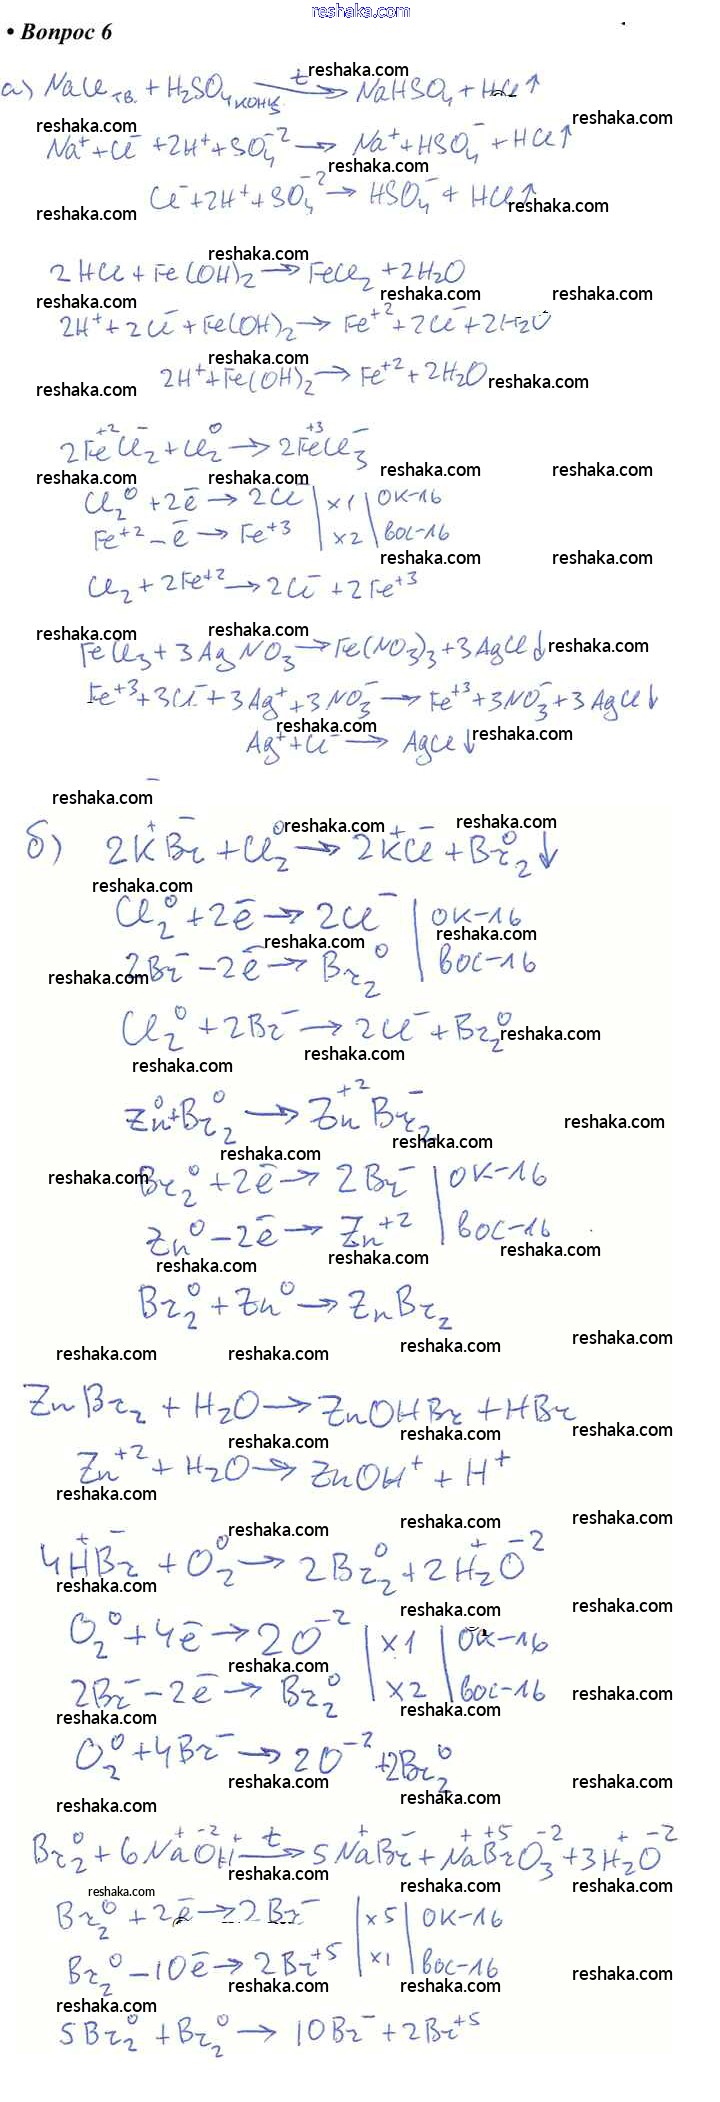 reshaka.com
• Вопрос 6
а) NaCl тв. + H₂SO₄ конц. –t→ NaHSO₄ + HCl↑
Na⁺ + Cl⁻ + 2H⁺ + SO₄⁻² → Na⁺ + HSO₄⁻ + HCl↑
Cl⁻ + 2H⁺ + SO₄⁻² → HSO₄⁻ + HCl↑
2HCl + Fe(OH)₂ → FeCl₂ + 2H₂O
2H⁺ + 2Cl⁻ + Fe(OH)₂ → Fe⁺² + 2Cl⁻ + 2H₂O
2H⁺ + Fe(OH)₂ → Fe⁺² + 2H₂O
2Fe⁺²Cl⁻₂ + Cl₂⁰ → 2Fe⁺³Cl⁻₃
Cl₂⁰ + 2ē → 2Cl⁻ | x1 | ок-ль
Fe⁺² – ē → Fe⁺³ | x2 | вос-ль
Cl₂ + 2Fe⁺² → 2Cl⁻ + 2Fe⁺³
FeCl₃ + 3AgNO₃ → Fe(NO₃)₃ + 3AgCl↓
Fe⁺³ + 3Cl⁻ + 3Ag⁺ + 3NO₃⁻ → Fe⁺³ + 3NO₃⁻ + 3AgCl↓
Ag⁺ + Cl⁻ → AgCl↓
б) 2K⁺Br⁻ + Cl₂⁰ → 2K⁺Cl⁻ + Br₂⁰↓
Cl₂⁰ + 2ē → 2Cl⁻ | ок-ль
2Br⁻ – 2ē → Br₂⁰ | вос-ль
Cl₂⁰ + 2Br⁻ → 2Cl⁻ + Br₂⁰
Zn⁰ + Br₂⁰ → Zn⁺²Br⁻₂
Br₂⁰ + 2ē → 2Br⁻ | ок-ль
Zn⁰ – 2ē → Zn⁺² | вос-ль
Br₂⁰ + Zn⁰ → ZnBr₂
ZnBr₂ + H₂O → ZnOHBr + HBr
Zn⁺² + H₂O → ZnOH⁺ + H⁺
4H⁺Br⁻ + O₂⁰ → 2Br₂⁰ + 2H₂⁺O⁻²
O₂⁰ + 4ē → 2O⁻² | x1 | ок-ль
2Br⁻ – 2ē → Br₂⁰ | x2 | вос-ль
O₂⁰ + 4Br⁻ → 2O⁻² + 2Br₂⁰
Br₂⁰ + 6Na⁺O⁻²H⁺ –t→ 5Na⁺Br⁻ + Na⁺Br⁺⁵O₃⁻² + 3H₂⁺O⁻²
Br₂⁰ + 2ē → 2Br⁻ | x5 | ок-ль
Br₂⁰ – 10ē → 2Br⁺⁵ | x1 | вос-ль
5Br₂⁰ + Br₂⁰ → 10Br⁻ + 2Br⁺⁵